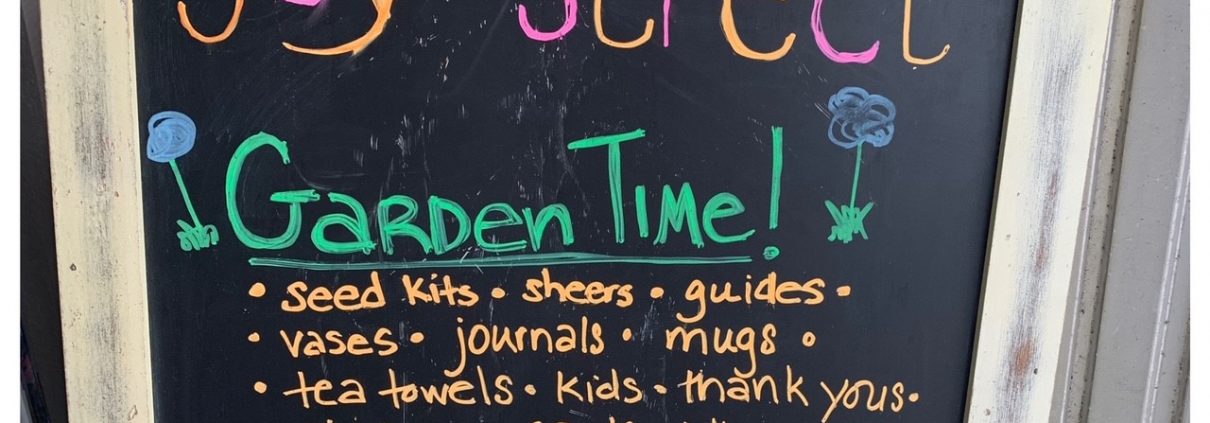 Joy Street
Garden Time!
• seed kits • sheers • guides •
• vases • journals • mugs •
• tea towels • kids • thank yous •